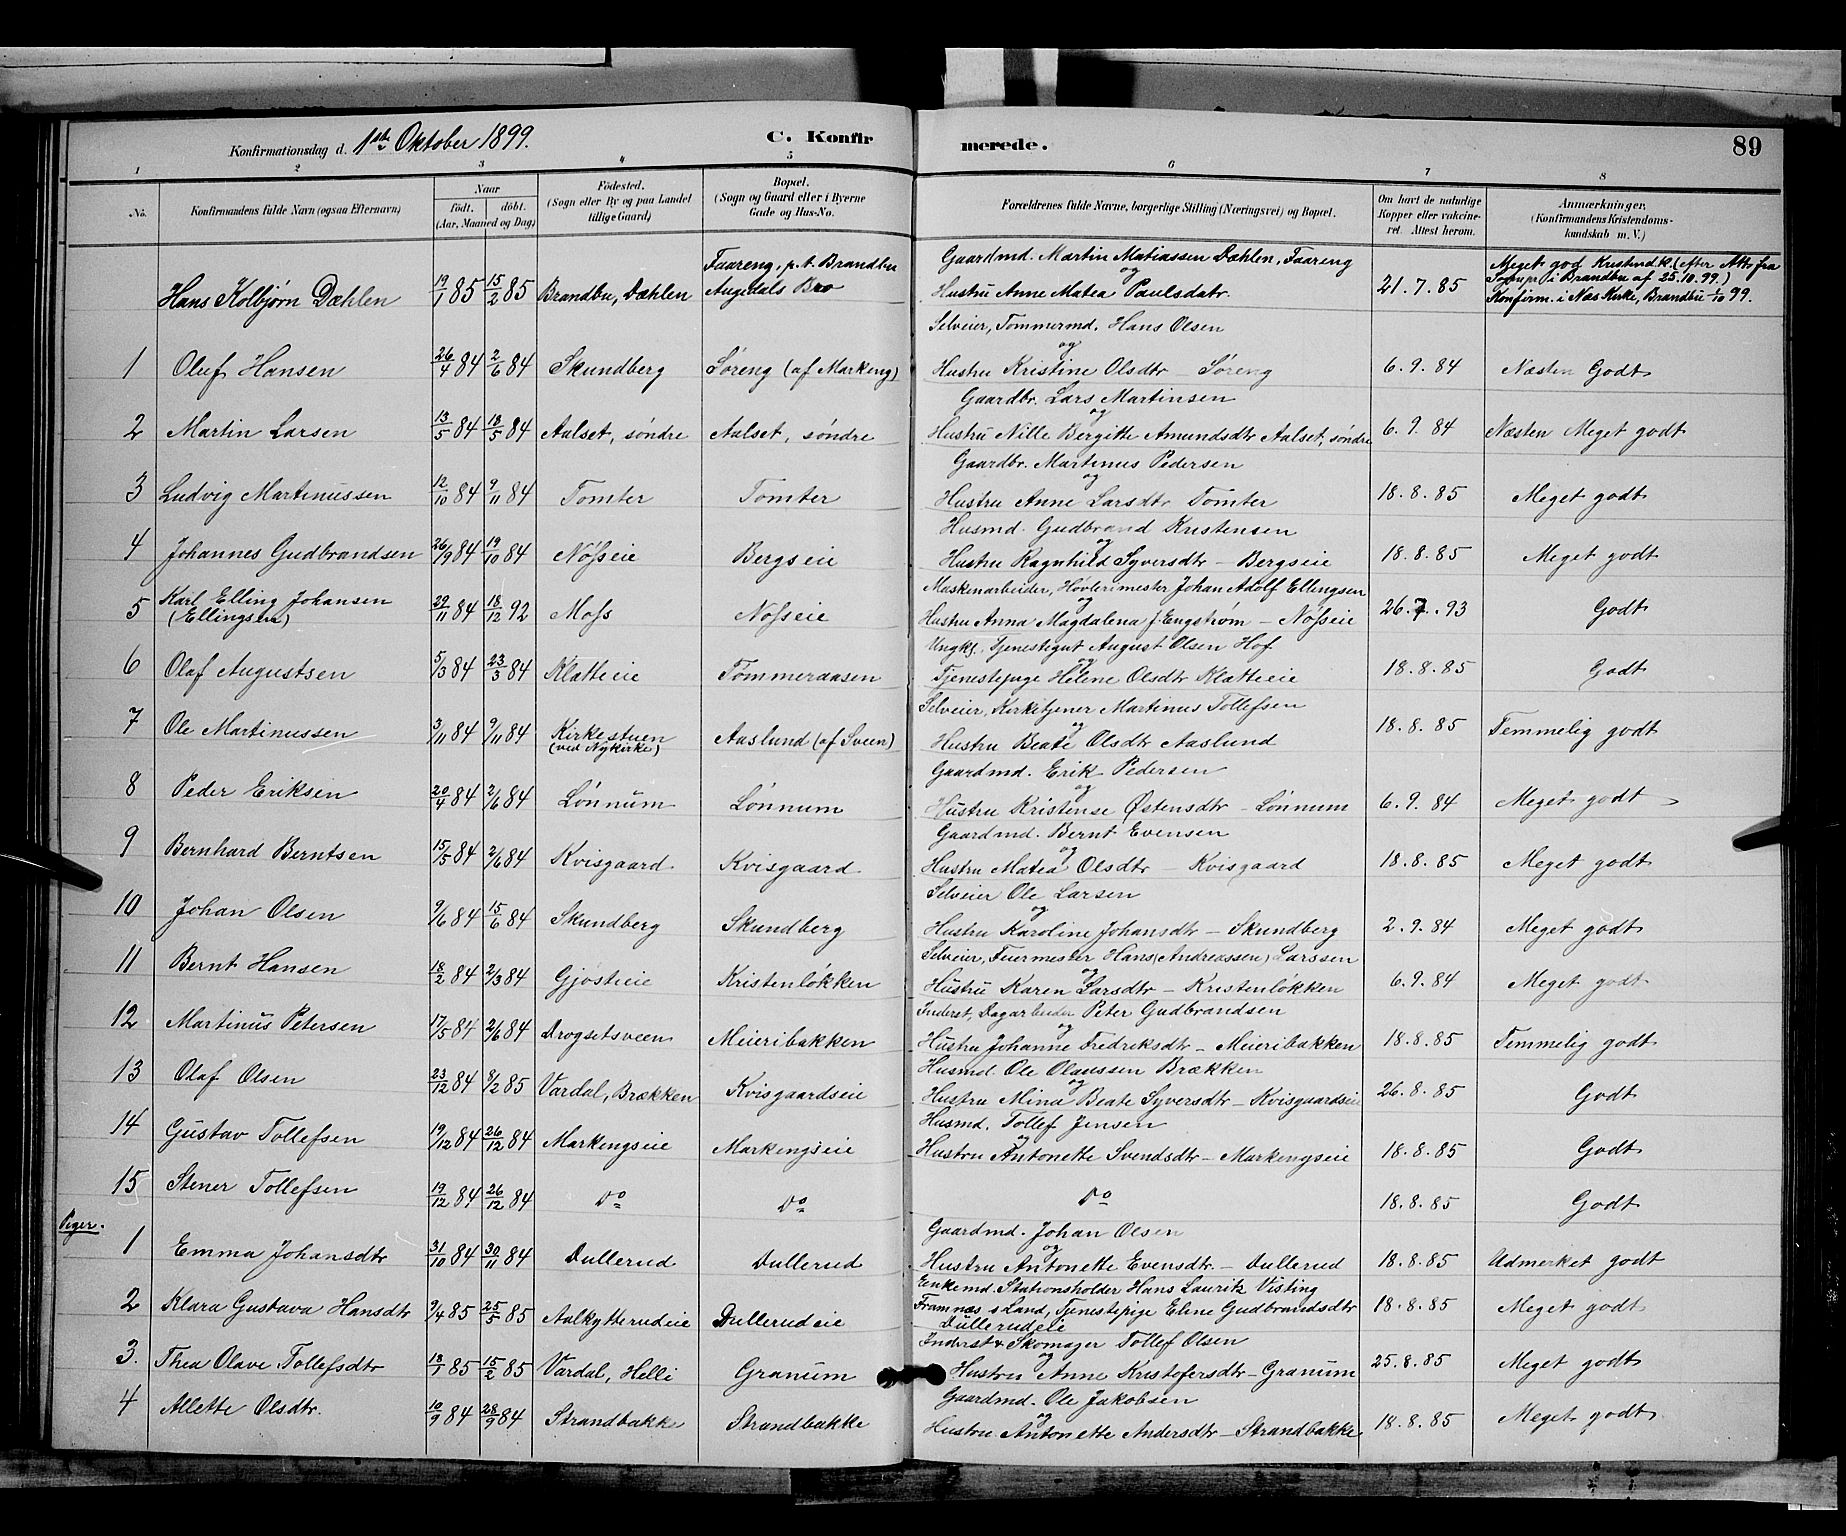 Konfirmationsdag d. 1ste Oktober 1899. C. Konfirmerede. 89
1 2 3 4 5 6 7 8
No. Konfirmandens fulde Navn (ogsaa Efternavn) Naar født. døbt. (Aar, Maaned og Dag) Fødested. (Sogn eller By og paa Landet tillige Gaard) Bopæl. (Sogn og Gaard eller i Byerne Gade og Hus-No. Forældrenes fulde Navne, borgerlige Stilling (Næringsvei) og Bopæl. Om havt de naturlige Kopper eller vakcineret. Attest herom. Anmærkninger. (Konfirmandens Kristendomskundskab m. V.)
Hans Kolbjørn Dæhlen 19/1 85 15/2 85 Brandbu, Dæhlen Faareng, p.t. Brandbu Augedals Bro Gaardmd. Martin Matiassen Dæhlen, Faareng og Hustru Anne Matea Paulsdatr. 21.7.85 Meget god Kristendk. (efter Att. fra Sognepr. i Brandbu af 25.10.99.) Konfirm. i Næs Kirke, Brandbu 1/10 99.
1 Oluf Hansen 26/4 84 2/6 84 Skundberg Søreng (af Markeng) Selveier, Tømmermd. Hans Olsen og Hustru Kristine Olsdtr – Søreng 6.9.84 Næsten Godt
2 Martin Larsen 13/5 84 18/5 84 Aalset, søndre Aalset, søndre Gaardbr. Lars Martinsen og Hustru Nille Bergitte Amundsdtr Aalset, søndre 6.9.84 Næsten Meget godt
3 Ludvig Martinussen 12/10 84 9/11 84 Tomter Tomter Gaardbr. Martinus Pedersen og Hustru Anne Larsdtr Tomter 18.8.85 Meget godt
4 Johannes Gudbrandsen 26/9 84 19/10 84 Nøsseie Bergseie Husmd. Gudbrand Kristensen og Hustru Ragnhild Syversdtr – Bergseie 18.8.85 Meget godt
5 Karl Elling Johansen (Ellingsen) 29/11 84 18/12 92 Moss Nøsseie Maskenarbeider, Høvlerimester Johan Adolf Ellingsen og Hustru Anna Magdalena f. Engstrøm – Nøsseie 26.7.93 Godt
6 Olaf Augustsen 5/3 84 23/3 84 Klætteie Tømmeraasen Ungk. Tjenestegut August Olsen Hof og Tjenestepige Helene Olsdtr Klætteie 18.8.85 Godt
7 Ole Martinussen 3/11 84 9/11 84 Kirkestuen (ved Nykirke) Aaslund (af Sveen) Selveier, Kirketjener Martinus Tollefsen og Hustru Beate Olsdtr Aaslund 18.8.85 Temmelig godt
8 Peder Eriksen 20/4 84 2/6 84 Lønnum Lønnum Gaardmd. Erik Pedersen og Hustru Kristense Østensdtr – Lønnum 6.9.84 Meget godt
9 Bernhard Berntsen 15/5 84 2/6 84 Kvisgaard Kvisgaard Gaardmd. Bernt Evensen og Hustru Matea Olsdtr – Kvisgaard 18.8.85 Meget godt
10 Johan Olsen 9/6 84 15/6 84 Skundberg Skundberg Selveier Ole Larsen og Hustru Karoline Johansdtr – Skundberg 2.9.84 Meget godt
11 Bernt Hansen 18/2 84 2/3 84 Gjøsteie Kristenløkken Selveier, Feiermester Hans (Andreassen) Larssen og Hustru Karen Larsdtr – Kristenløkken 6.9.84 Meget godt
12 Martinus Petersen 17/5 84 2/6 84 Drogsetsveen Meieribakken Inderst, Dagarbeider Peter Gudbrandsen og Hustru Johanne Fredriksdtr – Meieribakken 18.8.85 Temmelig godt
13 Olaf Olsen 23/12 84 8/2 85 Vardal, Brækken Kvisgaardseie Husmd. Ole Olaussen Brækken og Hustru Mina Beate Syversdtr – Kvisgaardseie 26.8.85 Godt
14 Gustav Tollefsen 19/12 84 26/12 84 Markengseie Markengseie Husmd. Tollef Jensen og Hustru Antonette Svendsdtr – Markengseie 18.8.85 Godt
15 Stener Tollefsen 19/12 84 26/12 84 Do Do Do 18.8.85 Godt
Piger.
1 Emma Johansdtr 31/10 84 30/11 84 Dullerud Dullerud Gaardmd. Johan Olsen og Hustru Antonette Evensdtr. – Dullerud 18.8.85 Udmerket godt
2 Klara Gustava Hansdtr 9/4 85 25/5 85 Aalkytterudeie Dullerudeie Enkemd. Stationsholder Hans Lauritz Visting Framnæs s. Land, Tjenestepige Eline Gudbrandsdtr Dullerudeie 18.8.85 Meget godt
3. Thea Olave Tollefsdtr 13/1 85 15/2 85 Vardal, Helli Granum Inderst & Skomager Tollef Olsen og Hustru Anne Kristofersdtr – Granum 25.8.85 Meget godt
4 Allette Olsdtr. 10/9 84 28/9 84 Strandbakke Strandbakke Gaardmd. Ole Jakobsen og Hustru Antonette Andersdtr – Strandbakke 18.8.85 Meget godt